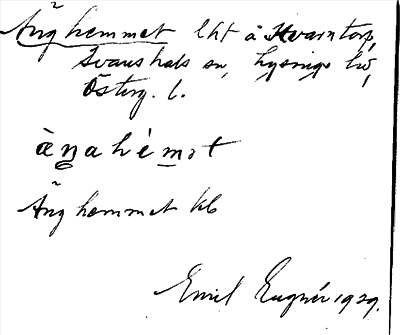 Änghemmet lht å Kvarntorp,
Svanshals sn, Lysings hd,
Österg. l.
àŋahémət
Änghemmet kb
Emil Eugnér 1929.